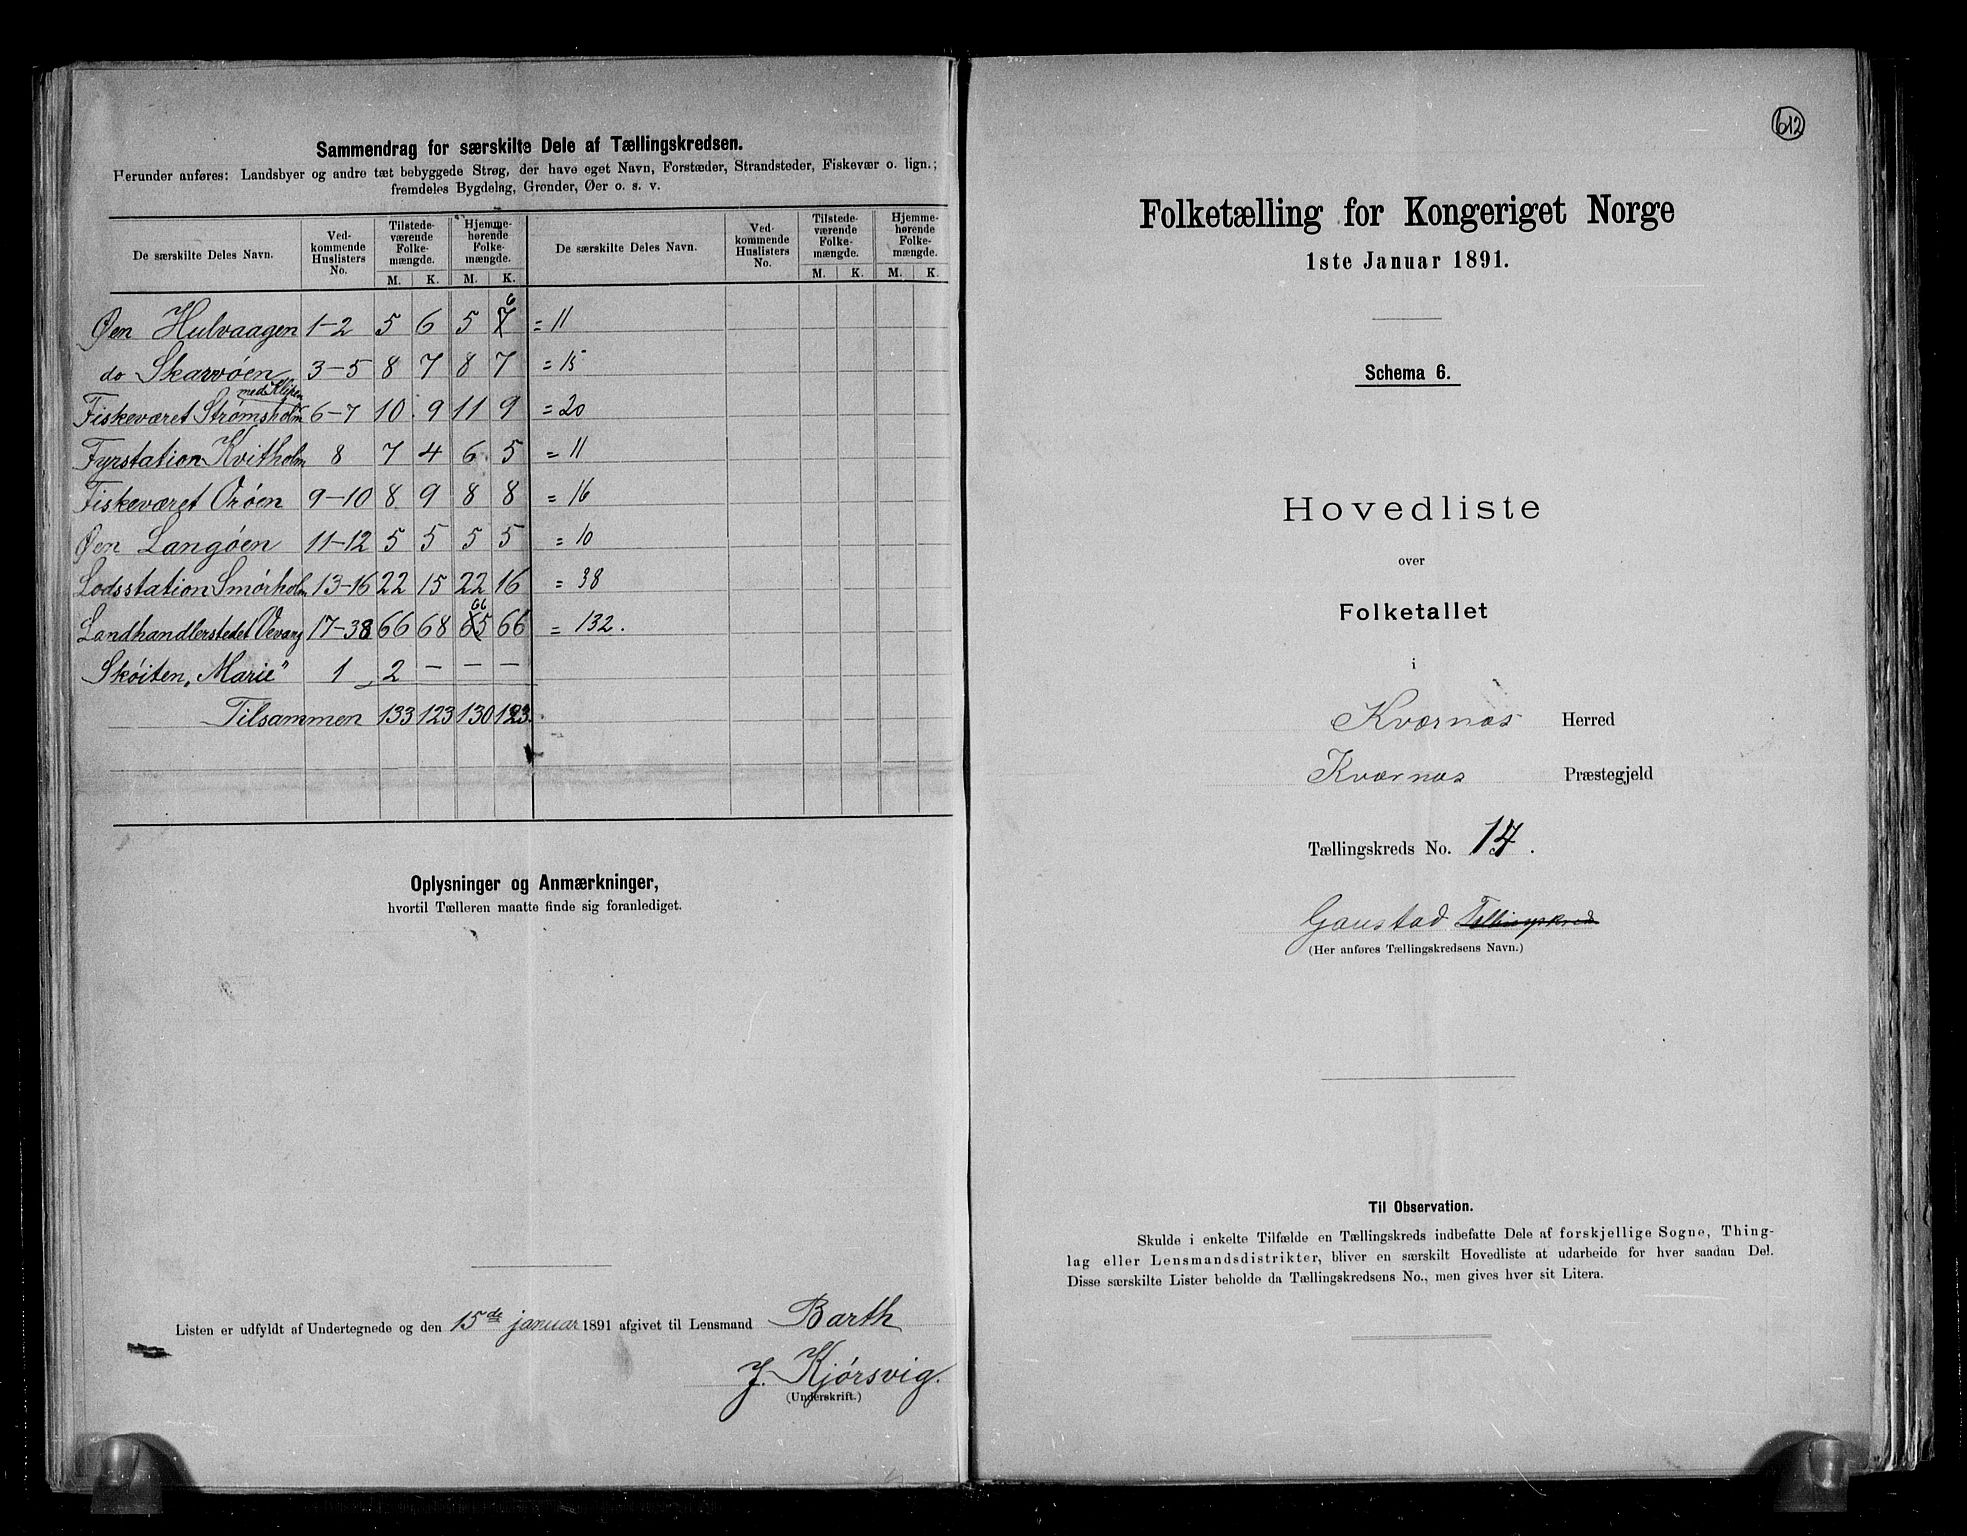 Sammendrag for særskilte Dele af Tællingskredsen.
Herunder anføres: Landsbyer og andre tæt bebyggede Strøg, der have eget Navn, Forstæder, Strandsteder, Fiskevær o. lign.;
fremdeles Bygdelag, Grender, Øer o. s. v.
De særskilte Deles Navn. Ved-kommende Huslisters No. Tilstede-værende Folke-mængde. Hjemme-hørende Folke-mængde. De særskilte Deles Navn. Ved-kommende Huslisters No. Tilstede-værende Folke-mængde. Hjemme-hørende Folke-mængde.
M. K. M. K. M. K. M. K.
6
Øen Hulvaagen 1-2 5 6 5 7 = 11
do Skarvøen 3-5 8 7 8 7 = 15
med Klipen
Fiskeværet Strømsholm 6-7 10 9 11 9 = 20
Fyrstation Kvitholm 8 7 4 6 5 = 11
Fiskeværet Orøen 9-10 8 9 8 8 = 16
Øen Langøen 11-12 5 5 5 5 = 10
Lodsstation Smørholm 13-16 22 15 22 16 = 38
66
Landhandlerstedet Vevang 17-38 66 68 65 66 = 132.
Skøiten „Marie" 1 2 — — —
Tilsammen 133 123 130 123.
Oplysninger og Anmærkninger,
hvortil Tælleren maatte finde sig foranlediget.
Listen er udfyldt af Undertegnede og den 15de januar 1891 afgivet til Lensmand Barth
J. Kjørsvig.
(Underskrift.)
612
Folketælling for Kongeriget Norge
1ste Januar 1891.
Schema 6.
Hovedliste
over
Folketallet
i
Kværnæs Herred
Kværnæs Præstegjeld
Tællingskreds No. 14.
Gaustad
(Her anføres Tællingskredsens Navn.)
Til Observation.
Skulde i enkelte Tilfælde en Tællingskreds indbefatte Dele af forskjellige Sogne, Thing-
lag eller Lensmandsdistrikter, bliver en særskilt Hovedliste at udarbeide for hver saadan Del.
Disse særskilte Lister beholde da Tællingskredsens No., men gives hver sit Litera.